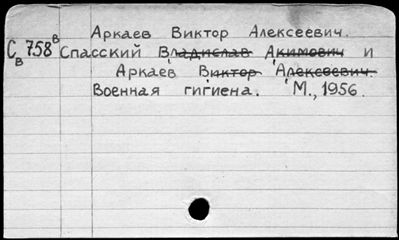 Аркаев Виктор Алексеевич.
С 758 Спасский Владислав Акимович и
в в
Аркаев Виктор Алексеевич.
Военная гигиена. М., 1956.